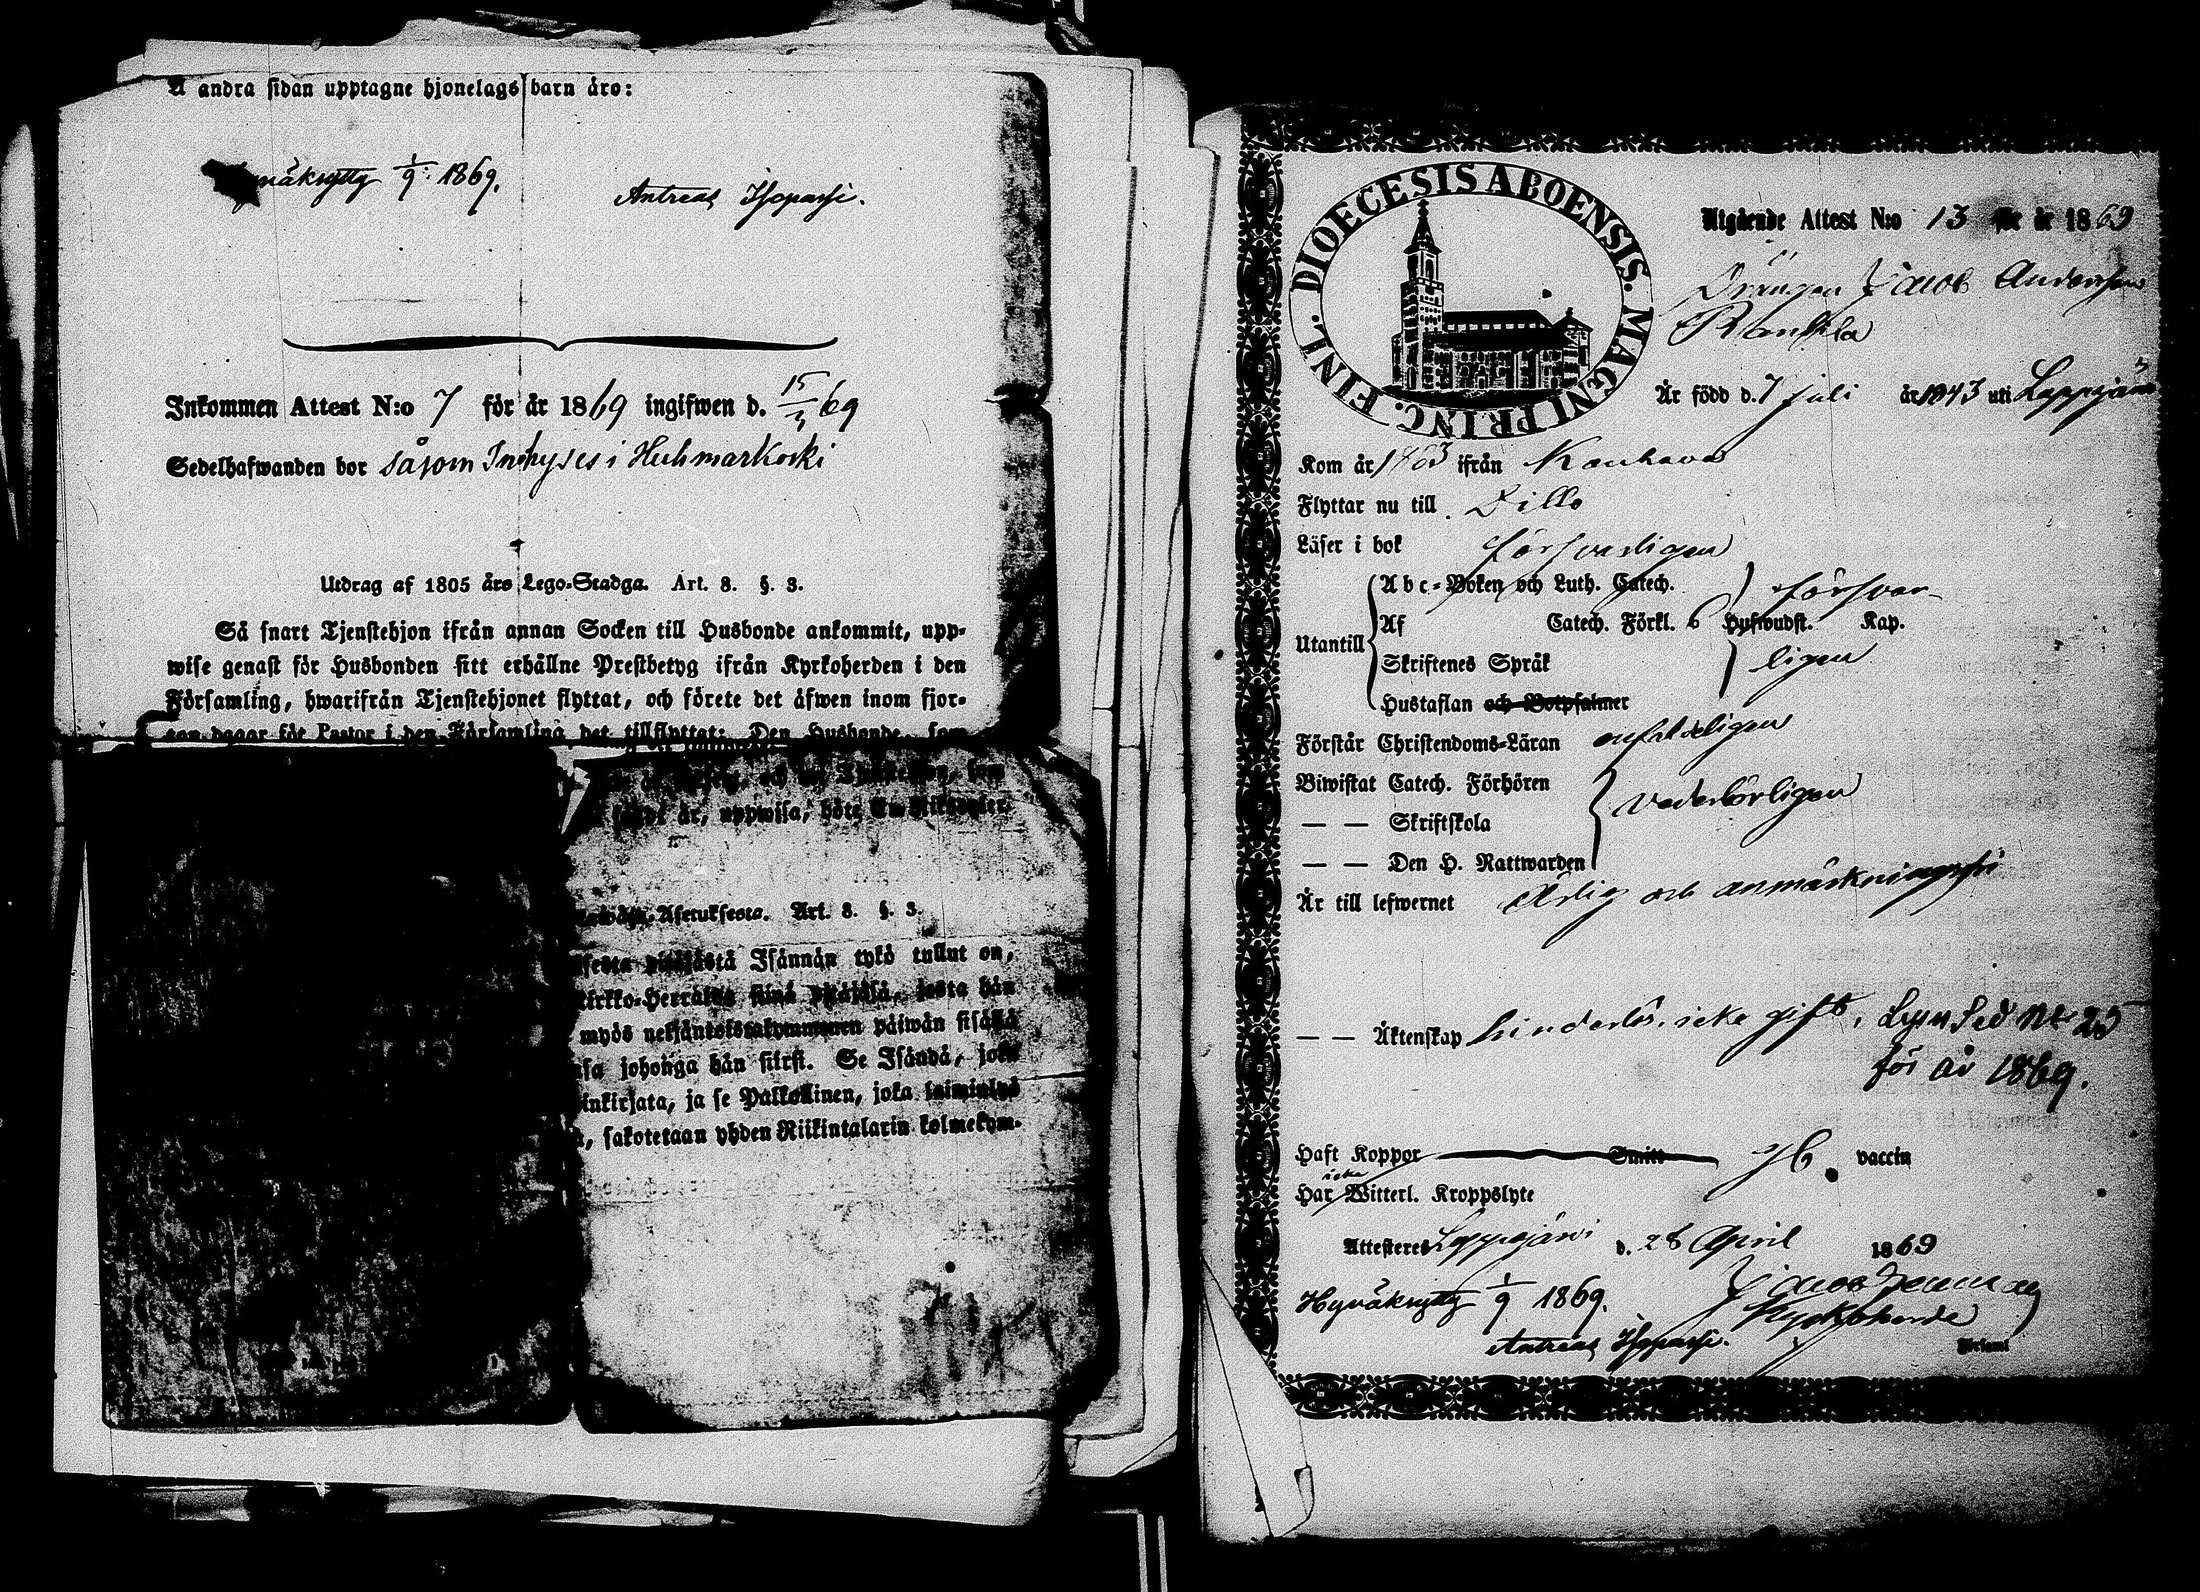 A andra sidan upptagne hjonelags barn äro:
1/9 1869.
Antreas Isopassi.
Inkommen Attest N:o 7 för år 1869 ingifwen d. 15/3 69
Sedelhafwanden bor såsom Inhyses i Huhmarkoski
Utdrag af 1805 års Lego-Stadga. Art. 8. §. 3.
Så snart Tjenstehjon ifrån annan Socken till Husbonde ankommit, upp-
wise genast för Husbonden sitt erhållne Prestbetyg ifrån Kyrkoherden i den
Församling, hwarifrån Tjenstehjonet flyttat, och förete det äfwen inom fjor-
ton dagar för Pastor i den Församling det tillflyttat; Den Husbonde, som
år, uppwisa, böte En Riksdaler
Asetuksesta. Art. 8. §. 3.
pitäjästä Isännän tykö tullut on,
Kirkko-Herralta siinä pitäjäsä, josta hän
myös neljäntoistakymmenen päiwän sisällä
johonga hän siirsi. Se Isändä, joka
inkirjata, ja se Palkollinen, joka laiminlyö
sakotetaan yhden Riikintalarin kolmekym-
DIOECESIS ABOENSIS. MAGNI PRINC. FINL.
Utgående Attest N:o 13 för år 1869
Drängen Jacob Andersson
Är född d. 7 juli år 1843 uti Lappajärvi
Kom år 1863 ifrån Kauhava
Flyttar nu till Dillo
Läser i bok försvarligen
Utantill
Abc-Boken och Luth. Catech. försvar-
Af Catech. Förkl. 6 Hufwudst. Kap.
Skriftenes Språk ligen
Hustaflan och Botpsalmer
Förstår Christendoms-Läran enfaldeligen
Biwistat Catech. Förhören
— — Skriftskola vederbörligen
— — Den H. Nattwarden
Är till lefwernet Ärlig och anmärkningsfri
— — Äktenskap hinderlös, icke gift. Lysn Sed No 25
för år 1869.
Haft Koppor Smitt vaccin
icke
Har Witterl. Kroppslyte
Attesteres Lappajärvi d. 28 April 1869
Hyväksytty 1/9 1869.
Kyrkoherde
Antreas Isopassi.